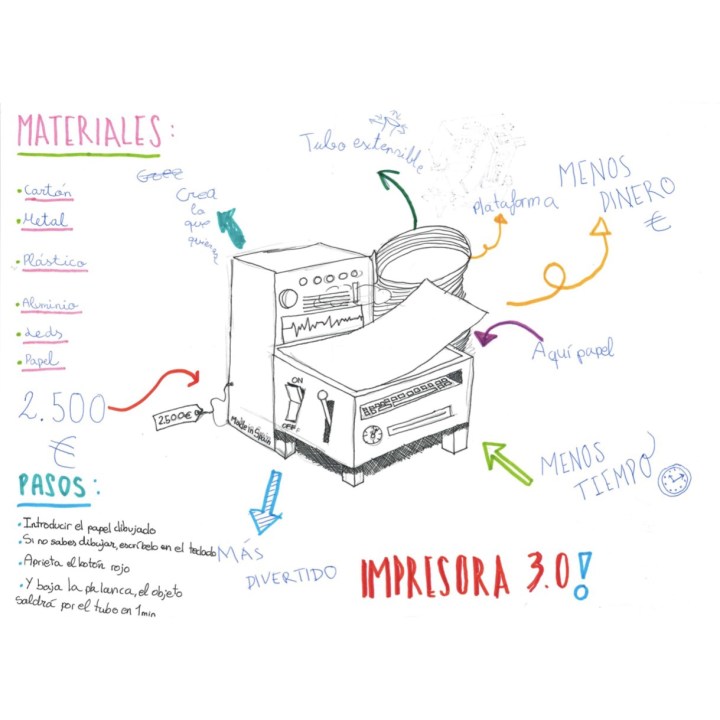 MATERIALES:
• Cartón
• Metal
• Plástico
• Aluminio
• Leds
• Papel
2.500
€
PASOS:
• Introducir el papel dibujado
• Si no sabes dibujar, escríbelo en el teclado
• Aprieta el botón rojo
• Y baja la palanca, el objeto
saldrá por el tubo en 1min
Crea
lo
que
quieras
Tubo extensible
Plataforma
MENOS
DINERO
€
Aquí papel
MENOS
TIEMPO
MÁS
DIVERTIDO
IMPRESORA 3.0!
ON
OFF
2500€
Made in Spain